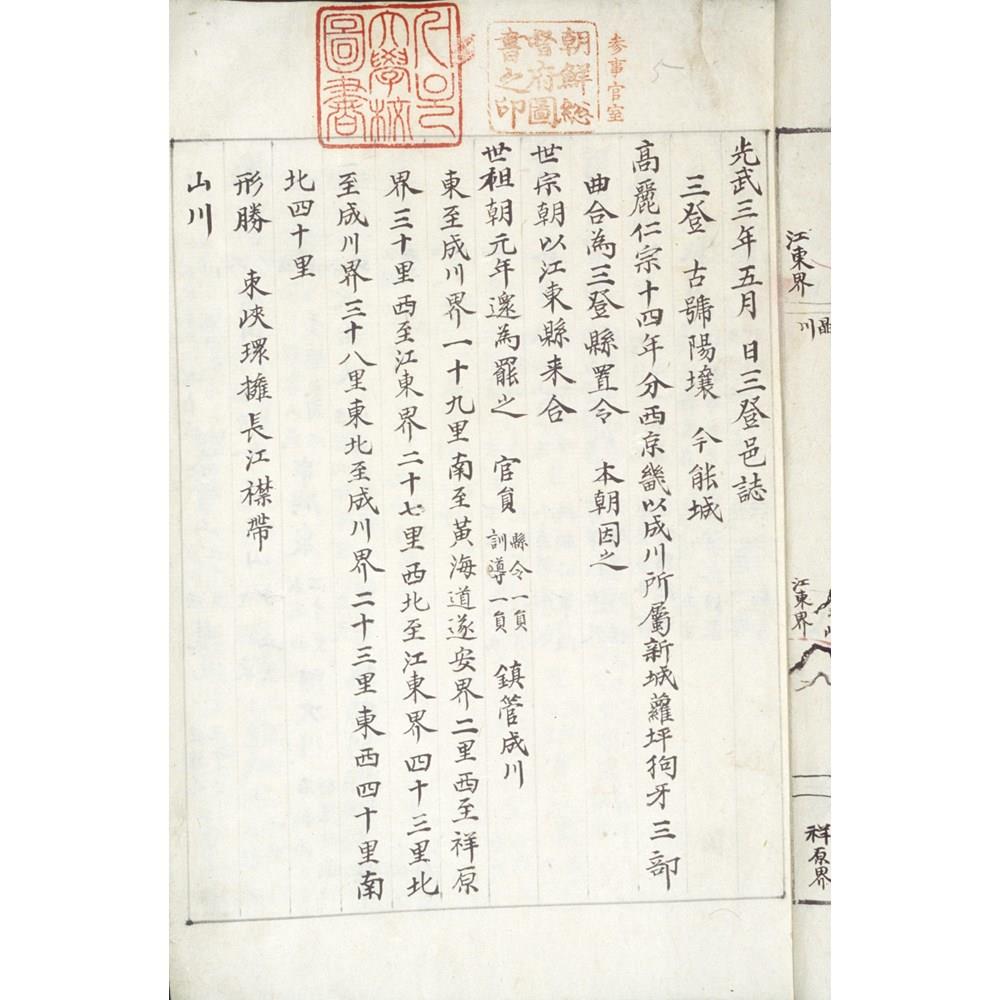 光武三年五月 日三登邑誌
三登 古號陽壤 今能城
高麗仁宗十四年分西京畿以成川所屬新城蘿坪狗牙三部
曲合為三登縣置令 本朝因之
世宗朝以江東縣来合
世祖朝元年還為罷之 官員 縣令一員 訓導一員 鎮管成川
東至成川界一十九里南至黃海道遂安界二里西至祥原
界三十里西至江東界二十七里西北至江東界四十三里北
至成川界三十八里東北至成川界二十三里東西四十里南
北四十里
形勝 東峽環擁長江襟帶
山川
参事官室
朝鮮総
督府圖
書之印
大學校
圖書
江東界
江東界
祥原界